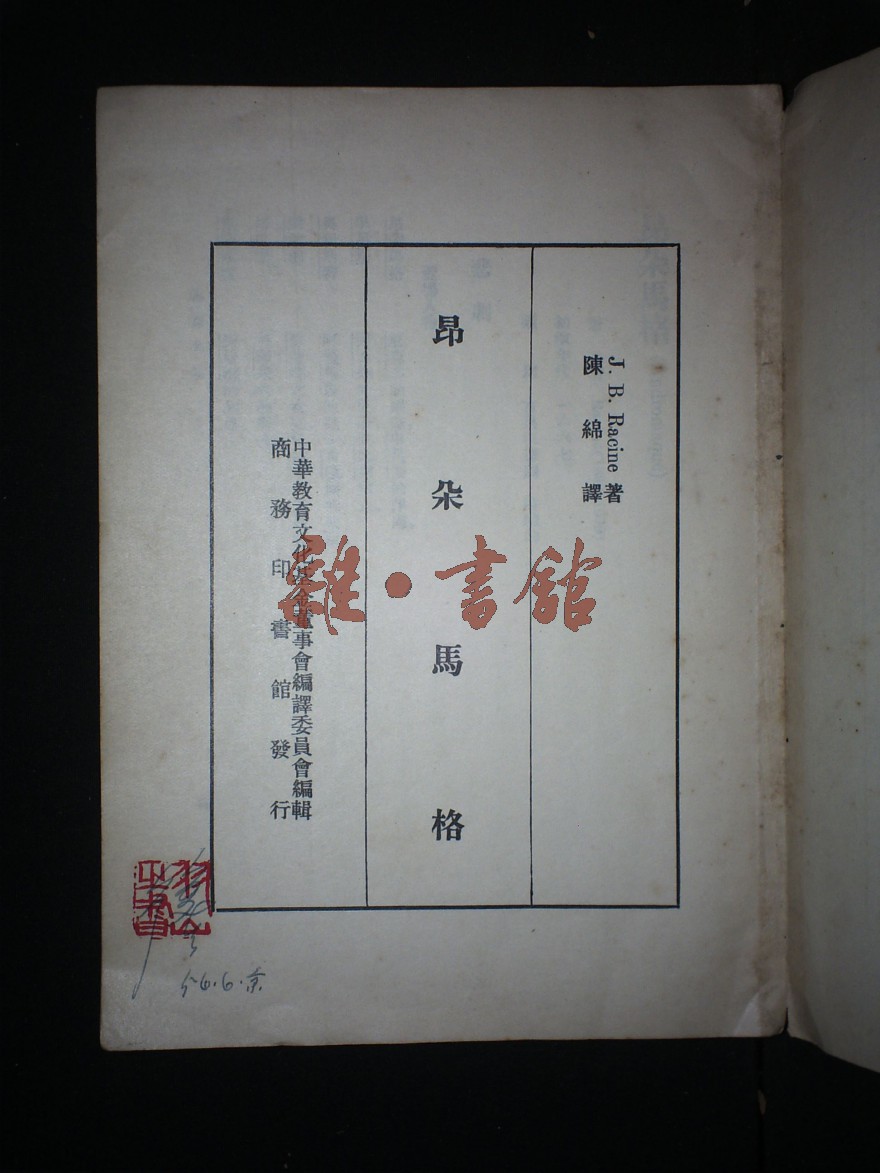 J. B. Racine 著
陳綿譯
昂朶馬格
中華教育文化基金董事會編譯委員會編輯
商務印書館發行
雜·書館
56.6.京